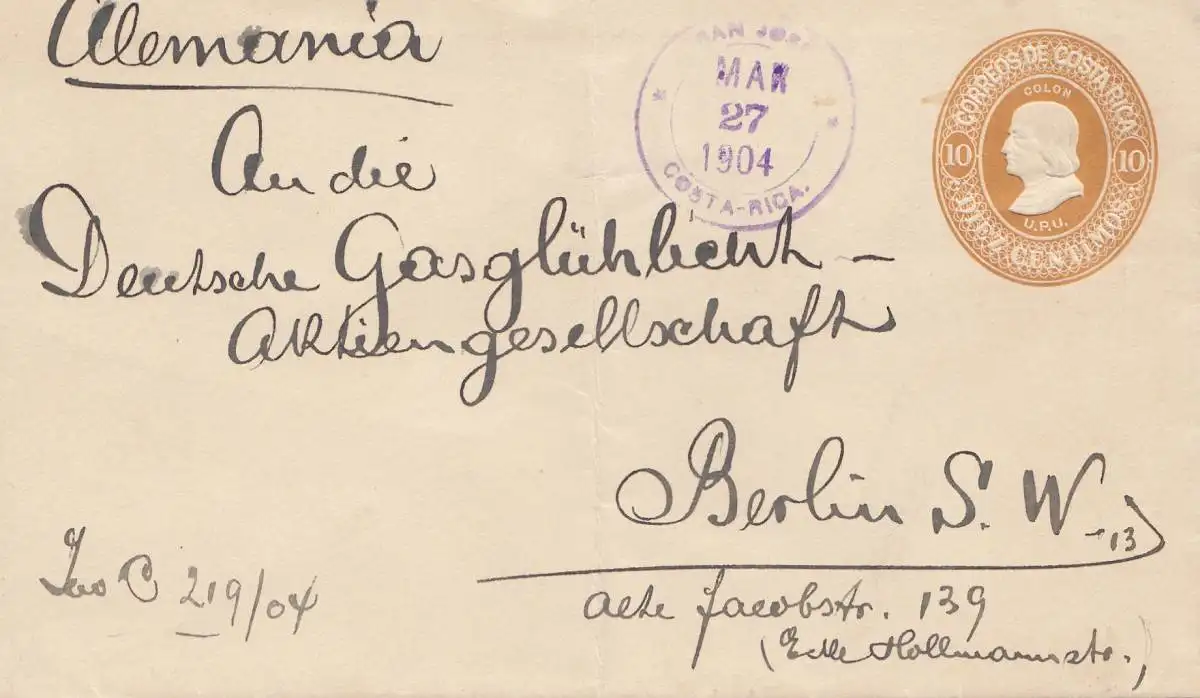 Alemania
An die
Deutsche Gasglühlicht -
Aktiengesellschaft
Berlin S. W. -13
alte Jacobstr. 139
(Ecke Hollmannstr.,)
C 219/04
SAN JOSE
MAR
27
1904
COSTA-RICA.
CORREOS DE COSTA RICA
COLON
10 10
U.P.U.
DIEZ CENTIMOS